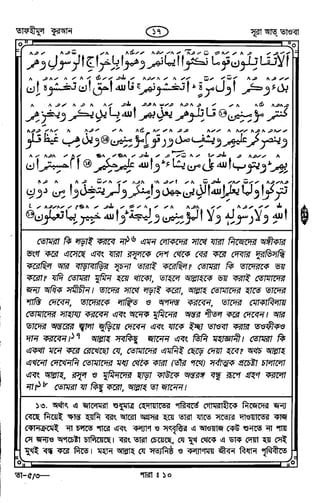 তাফহীমুল কুরআন
১৭
সূরা আত্ তাওবা
أَلَا تُقَاتِلُونَ قَوْمًا نَّكَثُوا أَيْمَانَهُمْ وَهَمُّوا بِإِخْرَاجِ الرَّسُولِ وَهُمْ
بَدَءُوكُمْ أَوَّلَ مَرَّةٍ أَتَخْشَوْنَهُمْ فَاللَّهُ أَحَقُّ أَن تَخْشَوْهُ إِن
كُنتُم مُّؤْمِنِينَ ﴿١٣﴾ قَاتِلُوهُمْ يُعَذِّبْهُمُ اللَّهُ بِأَيْدِيكُمْ وَيُخْزِهِمْ
وَيَنصُرْكُمْ عَلَيْهِمْ وَيَشْفِ صُدُورَ قَوْمٍ مُّؤْمِنِينَ ﴿١٤﴾ وَيُذْهِبْ غَيْظَ قُلُوبِهِمْ
وَيَتُوبُ اللَّهُ عَلَىٰ مَن يَشَاءُ وَاللَّهُ عَلِيمٌ حَكِيمٌ ﴿١٥﴾ أَمْ حَسِبْتُمْ أَن
تُتْرَكُوا وَلَمَّا يَعْلَمِ اللَّهُ الَّذِينَ جَاهَدُوا مِنكُمْ وَلَمْ يَتَّخِذُوا مِن دُونِ
اللَّهِ وَلَا رَسُولِهِ وَلَا الْمُؤْمِنِينَ وَلِيجَةً وَاللَّهُ خَبِيرٌ بِمَا تَعْمَلُونَ ﴿١٦﴾
তোমরা কি লড়াই করবে না এমন লোকদের সাথে যারা নিজেদের অঙ্গীকার
ভংগ করে এসেছে এবং যারা রসূলকে দেশ থেকে বের করে দেবার দুরভিসন্ধি
করেছিল আর বাড়াবাড়ির সূচনা তারাই করেছিল? তোমরা কি তাদেরকে ভয়
করো? যদি তোমরা মুমিন হয়ে থাকো, তাহলে আল্লাহকে ভয় করাই তোমাদের
জন্য অধিক সমীচীন। তাদের সাথে লড়াই করো, আল্লাহ তোমাদের হাতে তাদের
শাস্তি দেবেন, তাদেরকে লাঞ্ছিত ও অপদস্ত করবেন, তাদের মোকাবিলায়
তোমাদের সাহায্য করবেন এবং অনেক মুমিনের অন্তর শীতল করে দেবেন। আর
তাদের অন্তরের জ্বালা জুড়িয়ে দেবেন এবং যাকে ইচ্ছা তাওবা করার তওফীকও
দান করবেন।১৭ আল্লাহ সবকিছু জানেন এবং তিনি মহাজ্ঞানী। তোমরা কি
একথা মনে করে রেখেছো যে, তোমাদের এমনিই ছেড়ে দেয়া হবে? অথচ আল্লাহ
এখনো দেখেননি তোমাদের মধ্য থেকে কারা (তাঁর পথে) সর্বাত্মক প্রচেষ্টা চালালো
এবং আল্লাহ, রসূল ও মুমিনদের ছাড়া কাউকে অন্তরঙ্গ বন্ধু রূপে গ্রহণ করলো
না।১৮ তোমরা যা কিছু করো, আল্লাহ তা জানেন।
১৩. অর্থাৎ এ জালেমরা শুধুমাত্র হেদায়াতের পরিবর্তে গোমরাহীকে নিজেদের জন্য
বেছে নিয়েই ক্ষান্ত হয়নি বরং আরো অগ্রসর হয়ে তারা যাতে সত্যের দাওয়াতের কাজ
কোনক্রমেই না চলতে পারে এবং কল্যাণ ও সৎবৃত্তির এ আওয়াজ কেউ শুনতে না পায়
সে জন্যও অপচেষ্টা চালিয়েছে। বরং তারা চেয়েছে, যে মুখ থেকে এ ডাক দেয়া হয় সেই
মুখই বন্ধ করে দিতে। মহান আল্লাহ যে সত্যনিষ্ঠ ও কল্যাণময় জীবন বিধান পৃথিবীতে
তা-৫/৩—
পারা : ১০